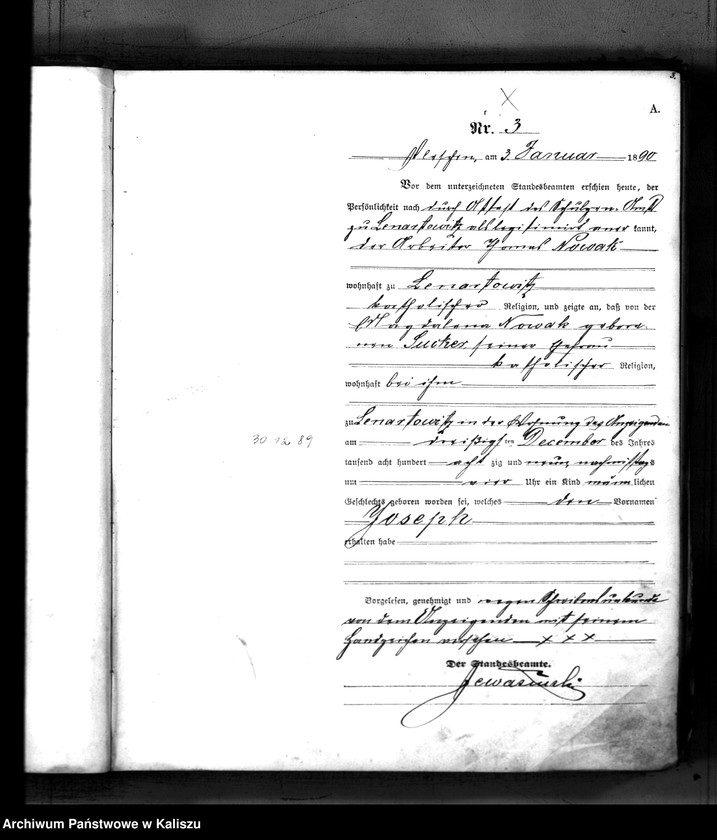 3.
A.
Nr. 3
Pleschen, am 3. Januar 1890
Vor dem unterzeichneten Standesbeamten erschien heute, der
Persönlichkeit nach durch Attest des Schulzen-Amts
zu Lenartowitz als legitimirt aner kannt,
der Arbeiter Thomas Nowak
wohnhaft zu Lenartowitz
katholischer Religion, und zeigte an, daß von der
Magdalena Nowak gebore
nen Sucker seiner Ehefrau
katholischer Religion,
wohnhaft bei ihm
zu Lenartowitz in der Wohnung des Anzeigenden
30 12 89
am dreißigsten December des Jahres
tausend acht hundert acht zig und neun nachmittags
um vier Uhr ein Kind männlichen
Geschlechts geboren worden sei, welches den Vornamen
Joseph
erhalten habe
Vorgelesen, genehmigt und wegen Schreibensunkunde
von dem Anzeigenden mit seinem
Handzeichen versehen x x x
Der Standesbeamte.
Archiwum Państwowe w Kaliszu